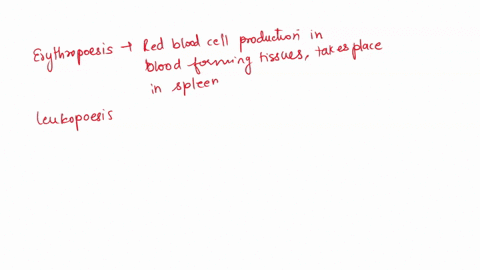 Erythropoesis → Red blood cell production in
blood forming tissues, takes place
in spleen
leukopoesis